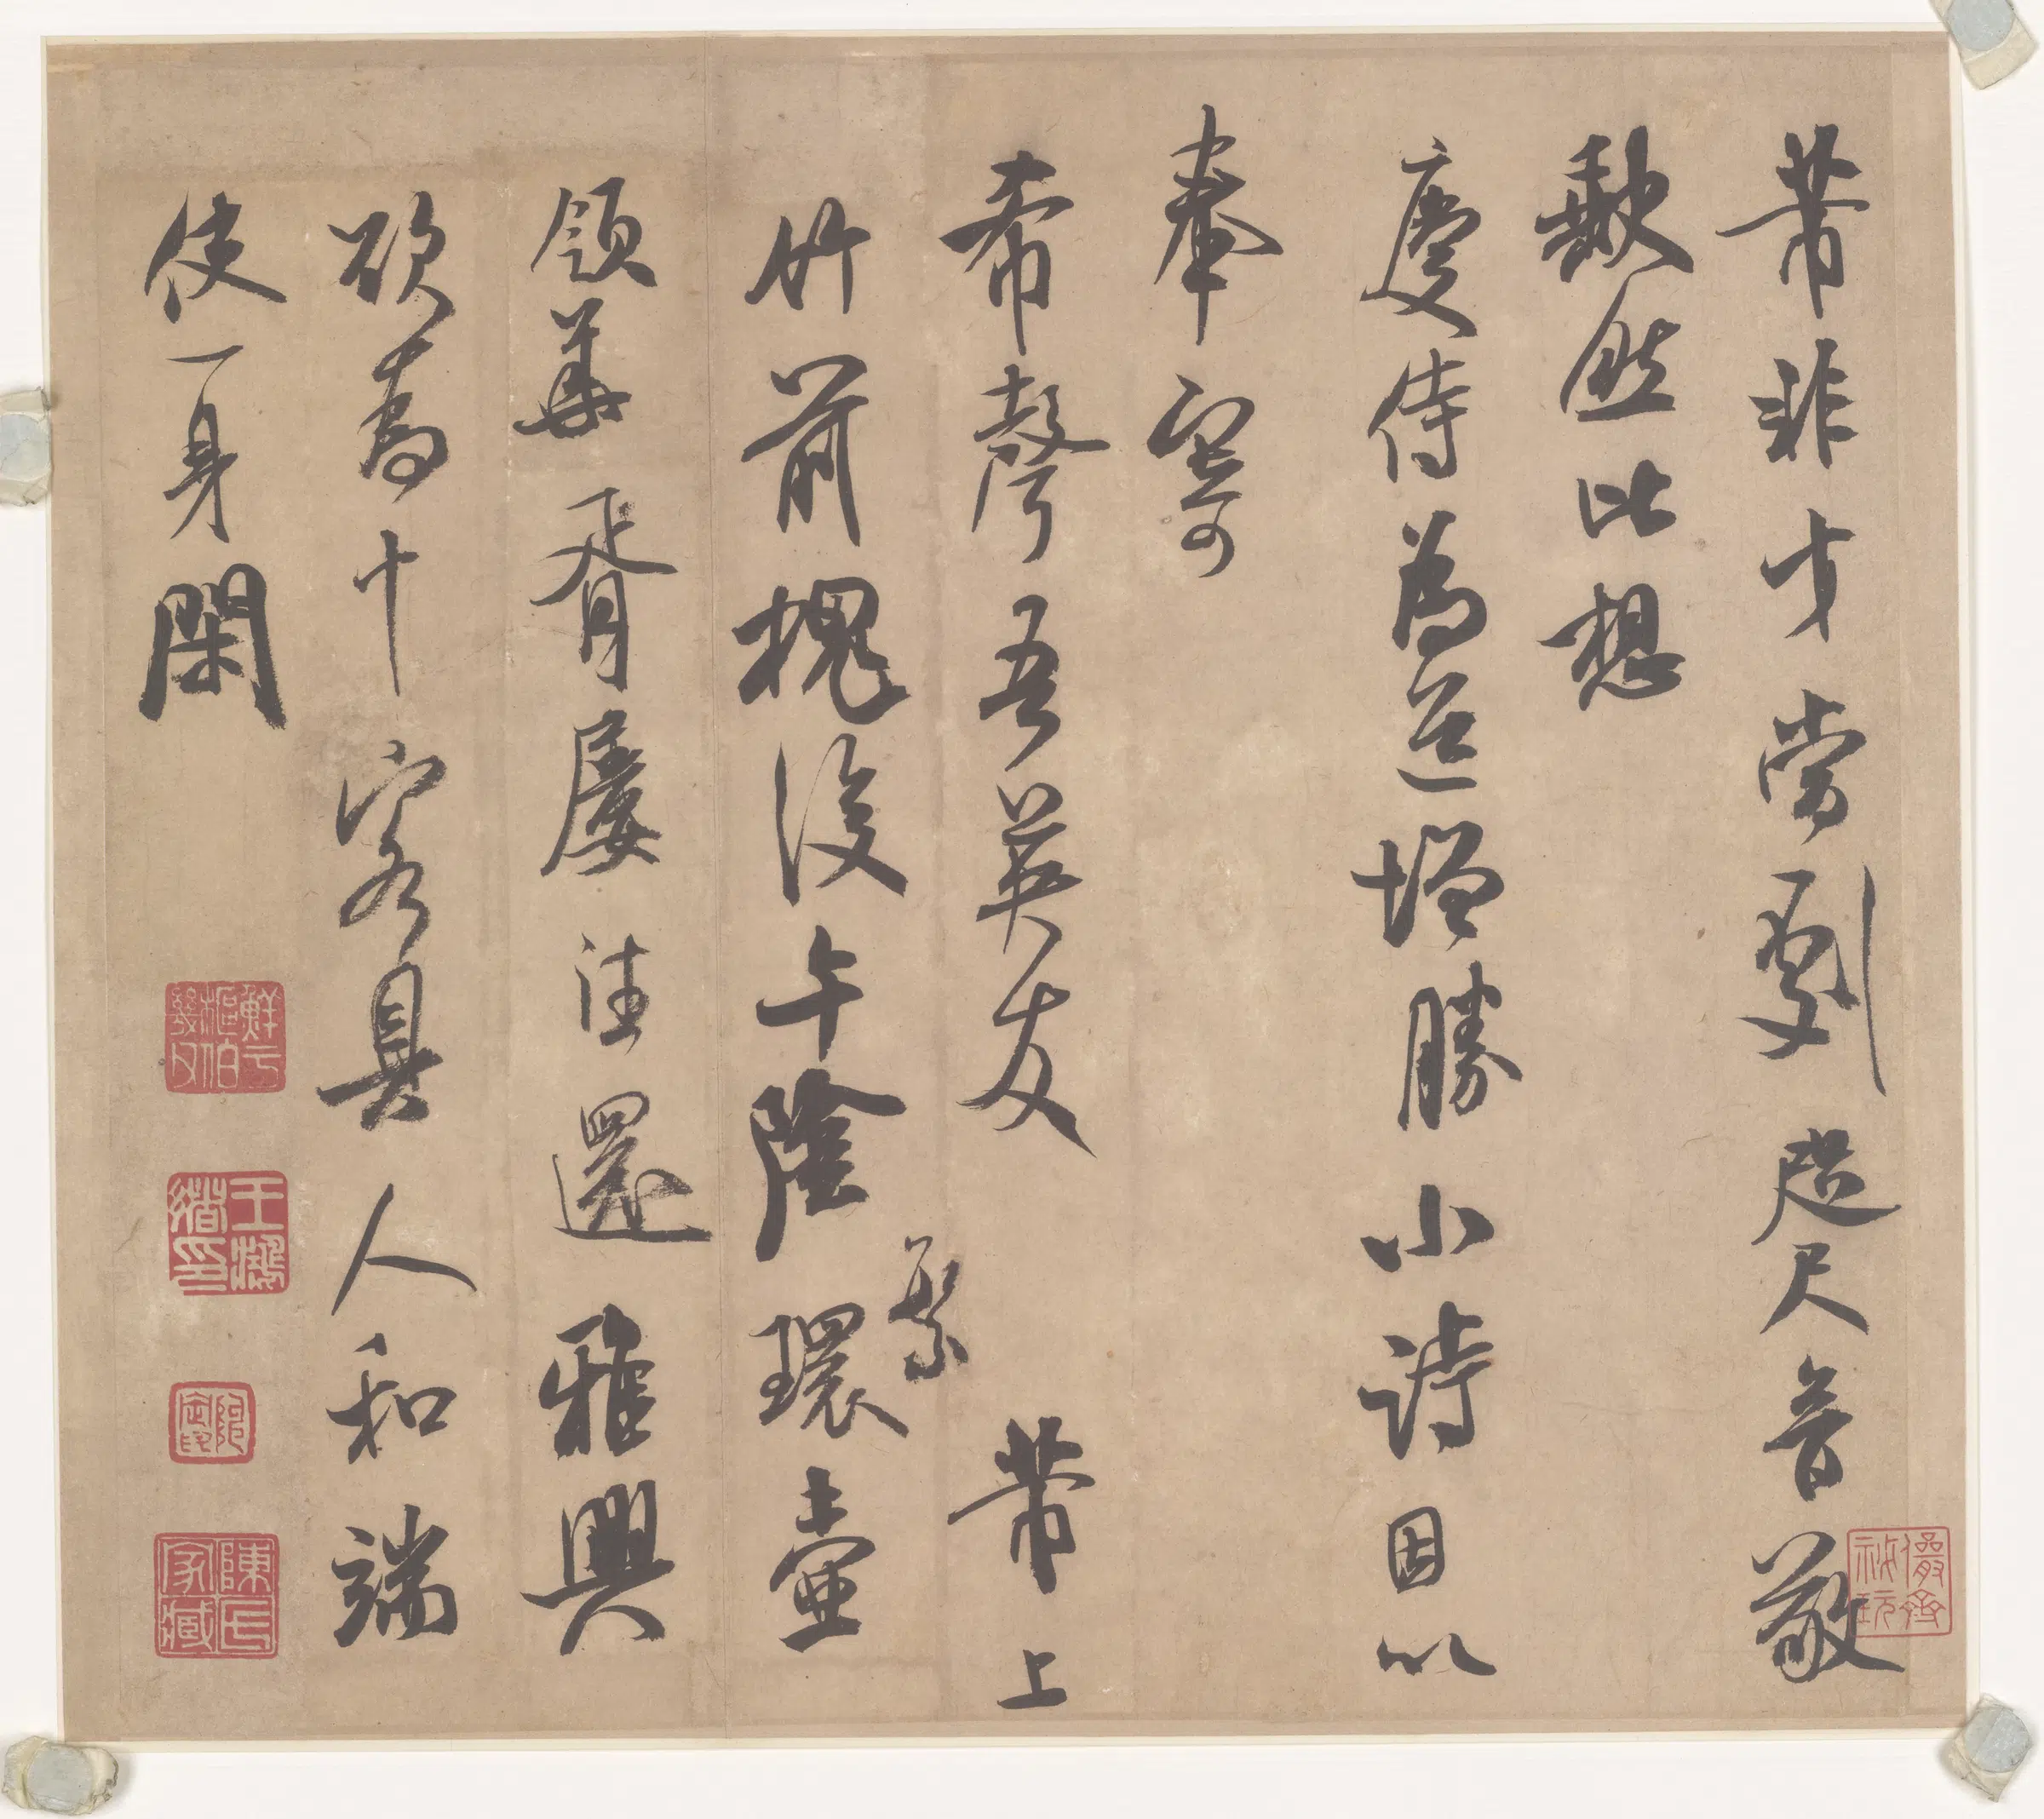 芾非才當劇咫尺音敬
缺然比想
慶侍為道增勝小詩因以
奉寄
希聲吾英友 芾上
竹前槐後午陰環壺
繁
領華胥屢往還雅興
欲為十客具人和端
使一身閑
儼齋秘玩
鮮于樞伯幾父
王鴻緒印
陳氏家藏